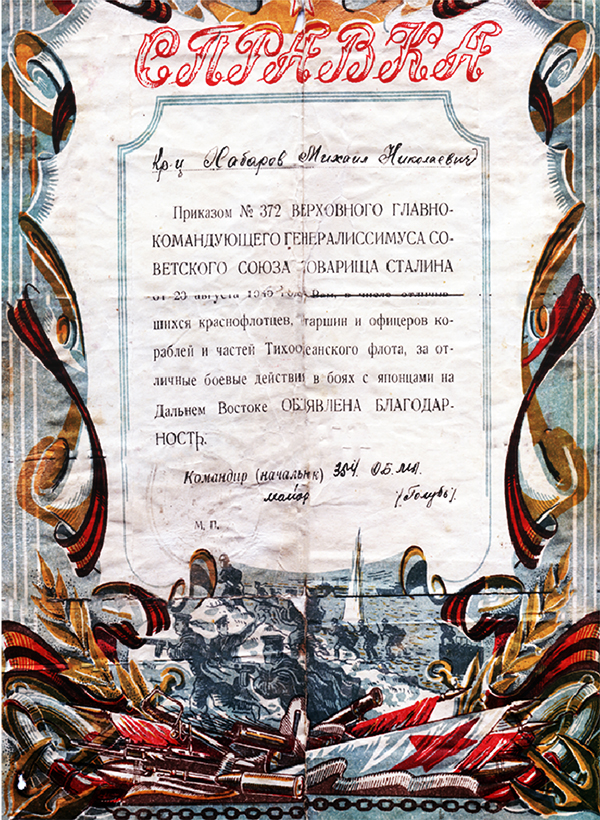 СПРАВКА
Кр-ц Хабаров Михаил Николаевич
Приказом № 372 ВЕРХОВНОГО ГЛАВНО-
КОМАНДУЮЩЕГО ГЕНЕРАЛИССИМУСА СО-
ВЕТСКОГО СОЮЗА ТОВАРИЩА СТАЛИНА
от 23 августа 1945 года Вам, в числе отличив-
шихся краснофлотцев, старшин и офицеров ко-
раблей и частей Тихоокеанского флота, за от-
личные боевые действия в боях с японцами на
Дальнем Востоке ОБЪЯВЛЕНА БЛАГОДАР-
НОСТЬ.
Командир (начальник) 354 О.Б.МП.
майор (Голубь).
М. П.